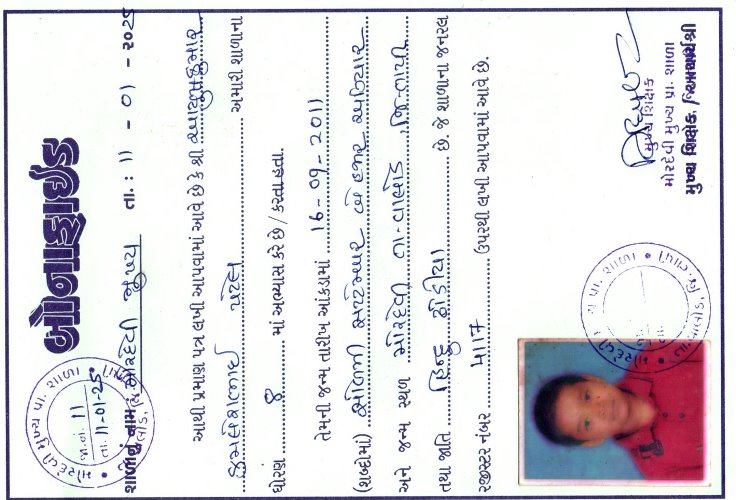 બોનાફાઈડ
શાળાનું નામ મોરદેવી મુખ્ય તા. : 11 - 01 - ૨૦૨૫
આથી પ્રમાણ પત્ર લખી આપવામાં આવે છે કે શ્રી આયુષકુમાર
પટેલ અમારી શાળાના
ધોરણ ૭ માં અભ્યાસ કરે છે / કરતા હતા.
તેમની જન્મ તારીખ આંકડામાં 16 - 09 - 2011
(શબ્દોમાં) સોળમી સપ્ટેમ્બર બે હજાર અગિયાર
અને જન્મ સ્થળ મોરદેવી તા-વાલોડ, જિ-તાપી
તથા જાતિ હિન્દુ છે. જે શાળાના જનરલ
રજીસ્ટર નંબર ૫117 ઉપરથી લખી આપવામાં આવે છે.
મોરદેવી મુખ્ય પ્રા. શાળા
જા.નં. 11
તા. 11-01-25
મુખ્ય શિક્ષક
મોરદેવી મુખ્ય પ્રા. શાળા
મુખ્ય શિક્ષક / આચાર્યશ્રી